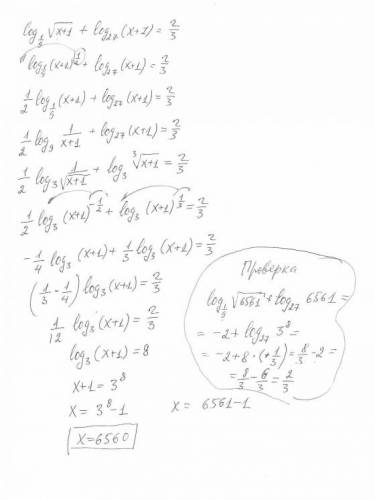 log_{1/9} √(x+1) + log₂₇(x+1) = 2/3
log_{1/9} (x+1)^{1/2} + log₂₇(x+1) = 2/3
1/2 log_{1/9} (x+1) + log₂₇(x+1) = 2/3
1/2 log₉ 1/(x+1) + log₂₇(x+1) = 2/3
1/2 log₃ √(1/(x+1)) + log₃ ∛(x+1) = 2/3
1/2 log₃ (x+1)^{-1/2} + log₃ (x+1)^{1/3} = 2/3
-1/4 log₃ (x+1) + 1/3 log₃ (x+1) = 2/3
(1/3 - 1/4) log₃ (x+1) = 2/3
1/12 log₃ (x+1) = 2/3
log₃ (x+1) = 8
x+1 = 3⁸
x = 3⁸-1
x = 6561-1
x=6560
Проверка
log_{1/9} √6561 + log₂₇ 6561 =
= -2 + log₂₇ 3⁸ =
= -2+8·(+1/3) = 8/3 - 2 =
= 8/3 - 6/3 = 2/3